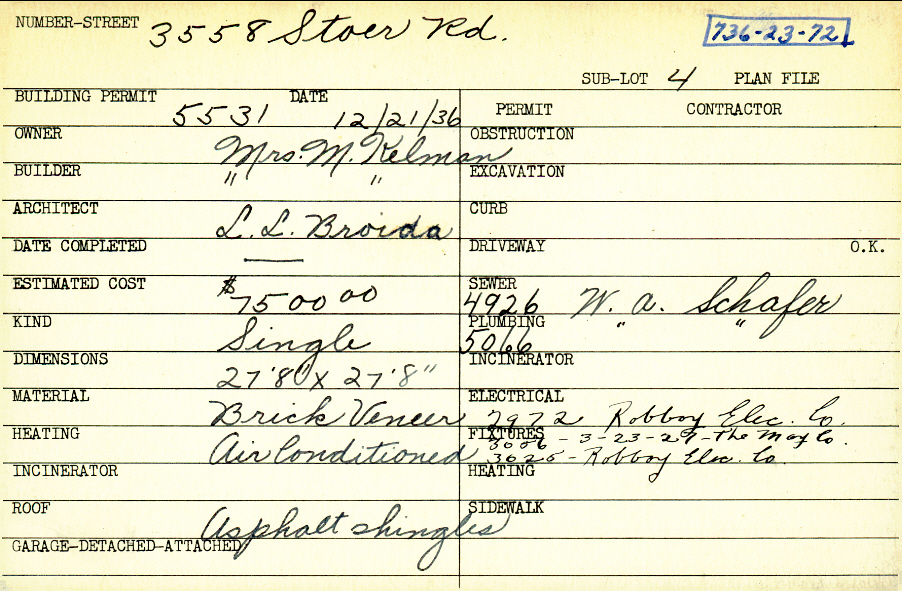 NUMBER-STREET 3558 Stoer Rd. 736-23-72
SUB-LOT 4 PLAN FILE
BUILDING PERMIT 5531 DATE 12/21/36
PERMIT CONTRACTOR
OWNER Mrs. M. Kelman
OBSTRUCTION
BUILDER " "
EXCAVATION
ARCHITECT L. L. Broida
CURB
DATE COMPLETED —
DRIVEWAY O.K.
ESTIMATED COST $7500 00
SEWER 4926 W. A. Schafer
KIND Single
PLUMBING 5066 " "
DIMENSIONS 27'8" X 27'8"
INCINERATOR
MATERIAL Brick Veneer
ELECTRICAL 2972 Robboy Elec. Co.
HEATING Air Conditioned
FIXTURES 3006 - 3-23-27 - The May Co.
3025 - Robboy Elec. Co.
INCINERATOR
HEATING
ROOF Asphalt shingles
SIDEWALK
GARAGE-DETACHED-ATTACHED